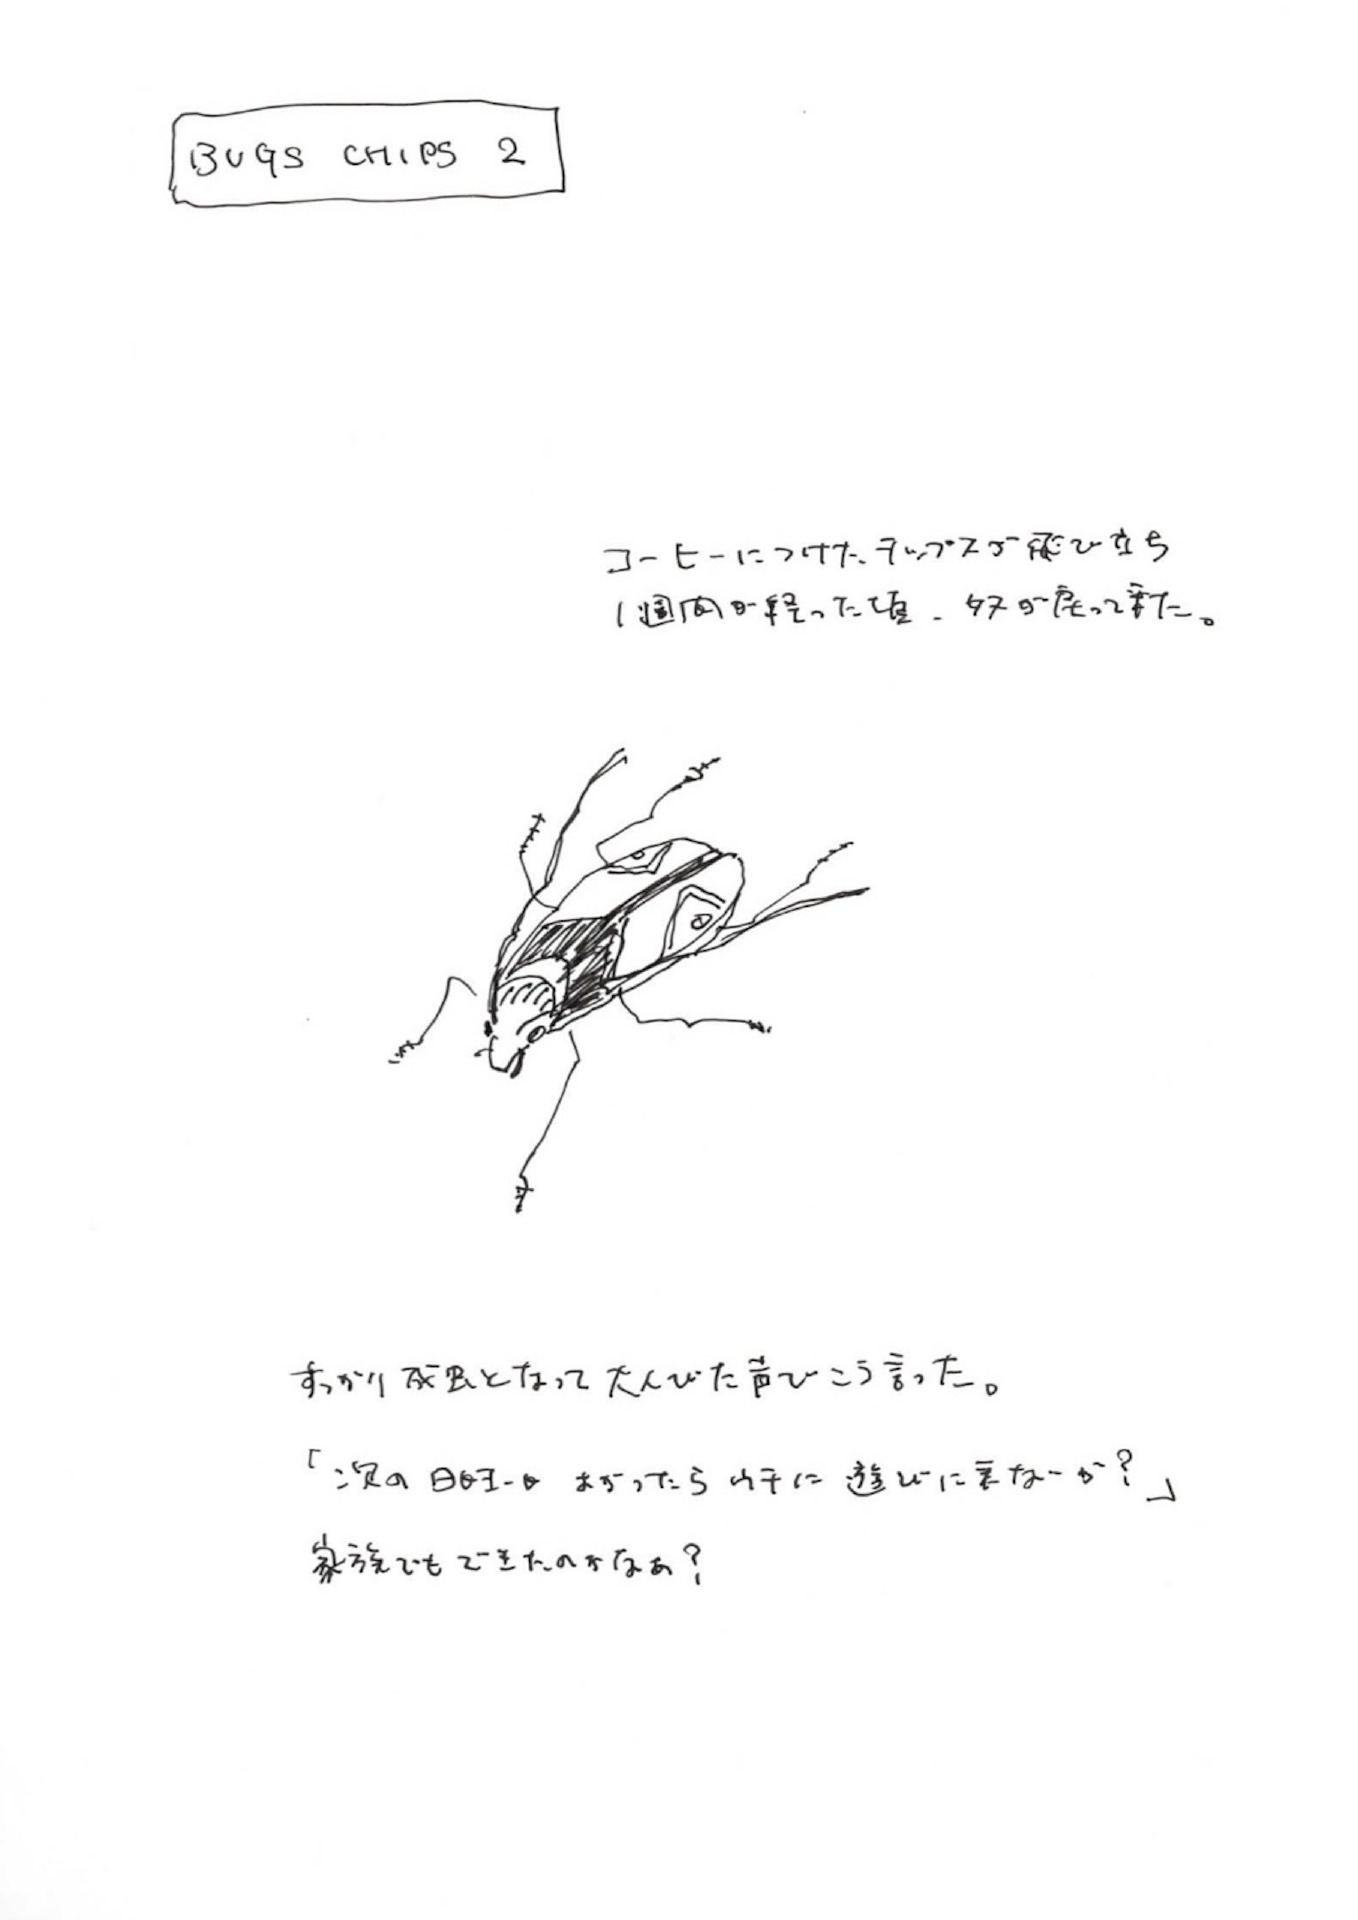 BUGS CHIPS 2
コーヒーにつけたチップスが飛び立ち
1週間が経った頃、タヌが戻って来た。
すっかり成虫となって大人びた声でこう言った。
「次の日曜日 よかったらウチに遊びに来ないか?」
家族でもできたのかなぁ?